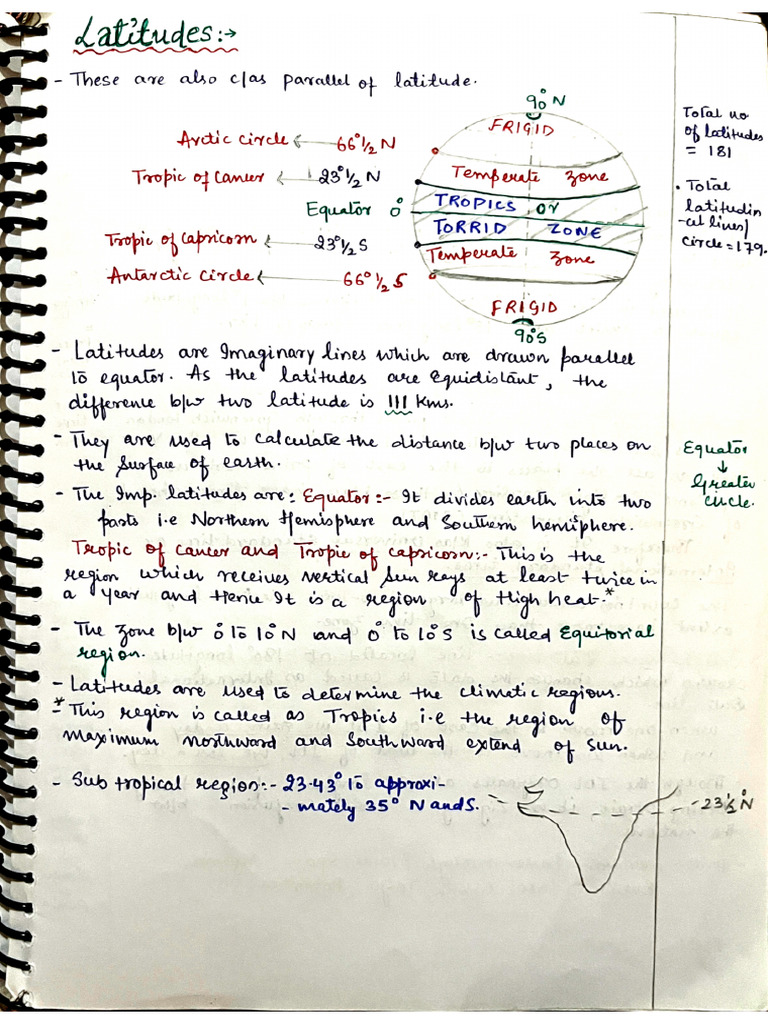 Latitudes:→
- These are also c/as parallel of latitude.
90° N
FRIGID
Arctic circle ← 66°1/2 N
Temperate zone
Tropic of Cancer ← 23°1/2 N
TROPICS or
Equator 0°
TORRID ZONE
Tropic of Capricorn ← 23°1/2 S
Temperate zone
Antarctic circle ← 66°1/2 S
FRIGID
90°S
Total no
of latitudes
= 181
. Total
latitudin
-al lines/
circle = 179.
- Latitudes are Imaginary lines which are drawn parallel
to equator. As the latitudes are Equidistant, the
difference b/w two latitude is 111 Kms.
- They are used to calculate the distance b/w two places on
the Surface of earth.
Equator
↓
Greater
circle.
- The Imp. latitudes are: Equator:- It divides earth into two
parts i.e Northern Hemisphere and Southern hemisphere.
Tropic of cancer and Tropic of capricorn:- This is the
region which receives vertical Sun rays at least twice in
a year and Hence It is a region of High heat.*
- The zone b/w 0° to 10° N and 0° to 10° S is called Equitorial
region.
- Latitudes are used to determine the climatic regions.
*- This region is called as Tropics i.e the region of
maximum northward and Southward extend of Sun.
- Sub tropical region:- 23.43° to approxi-
- mately 35° N and S.
- 23½° N